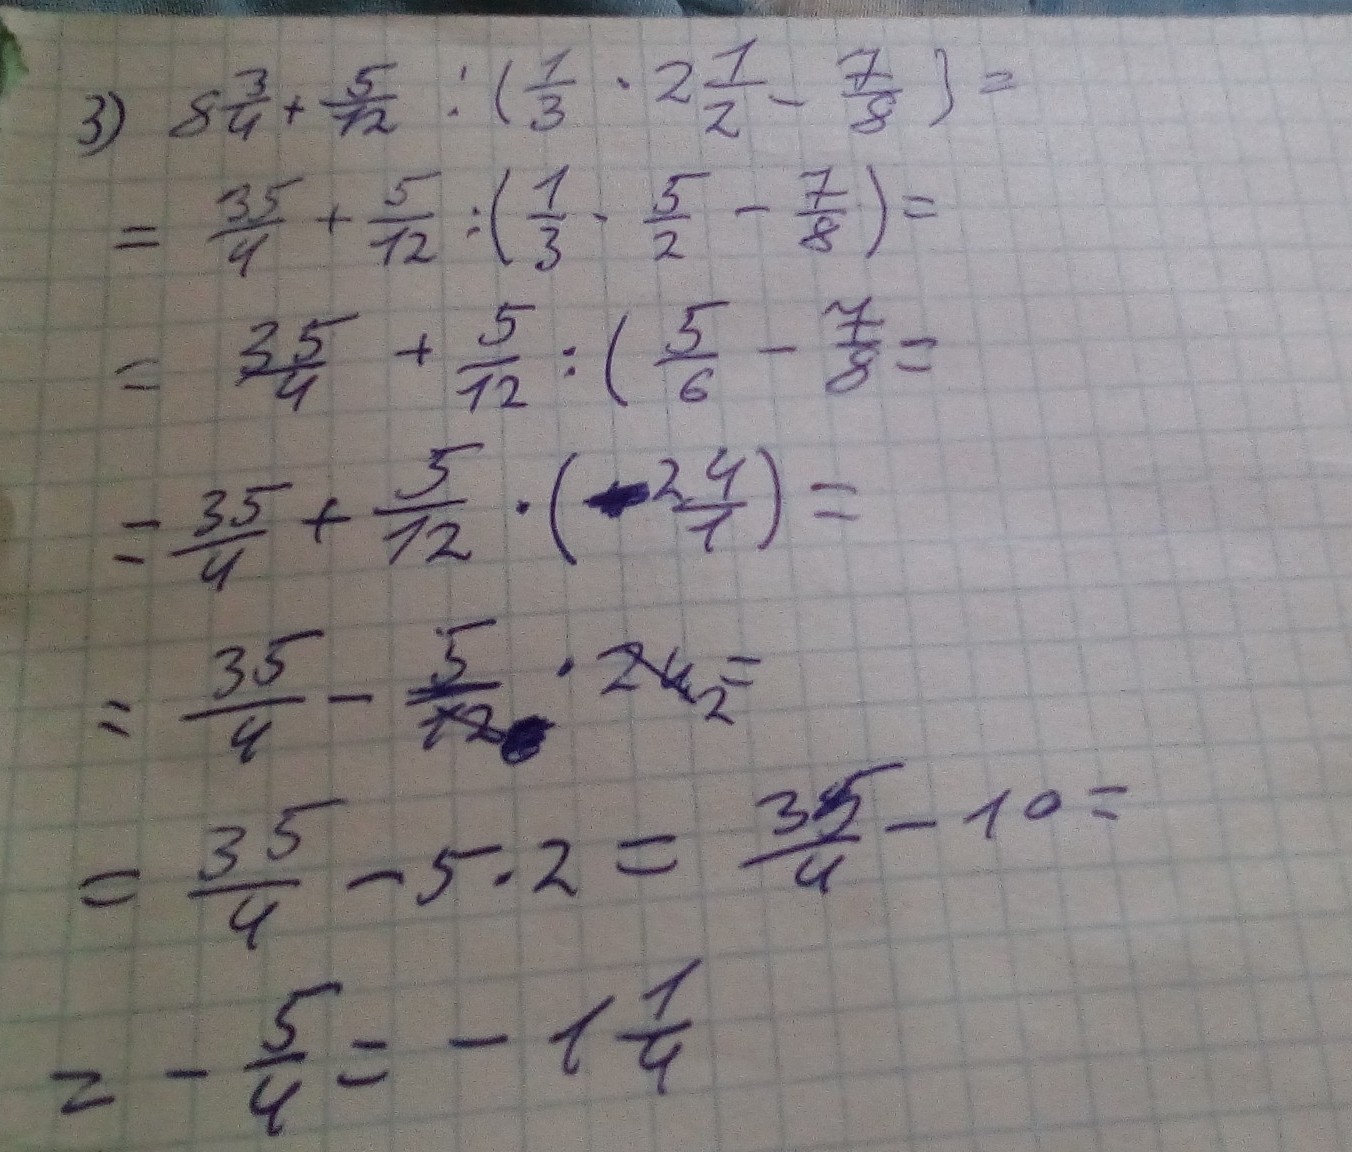 3) 8 3/4 + 5/12 : (1/3 · 2 1/2 - 7/8) =
= 35/4 + 5/12 : (1/3 · 5/2 - 7/8) =
= 35/4 + 5/12 : (5/6 - 7/8 =
= 35/4 + 5/12 · (- 24/1) =
= 35/4 - 5/12 · 24 2 =
= 35/4 - 5 · 2 = 35/4 - 10 =
= - 5/4 = - 1 1/4